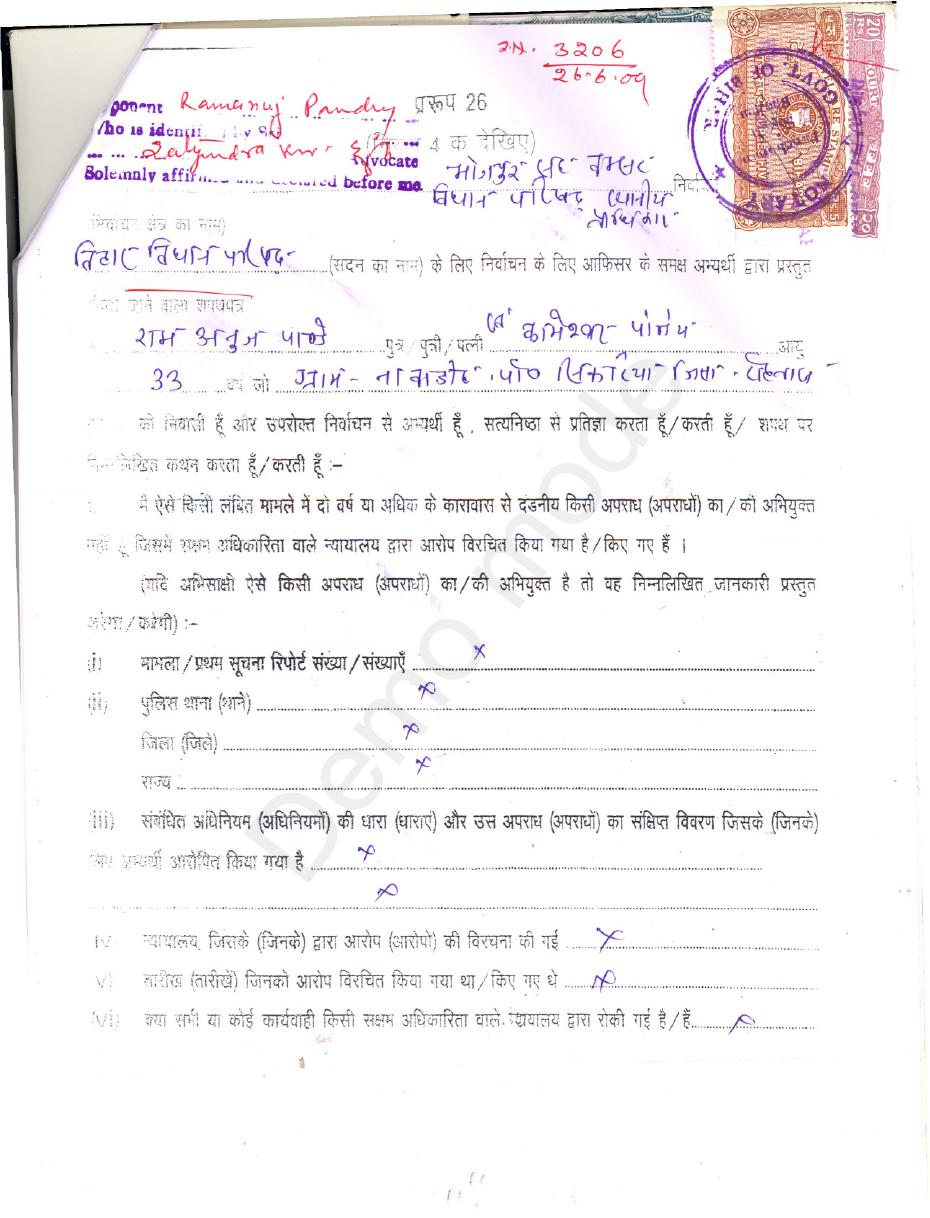 3206
26-6-09
20 RS
COURT FEE
GOVT. OF BIHAR
NOTARY
ponent Ramanuj Pandey प्ररूप 26
ho is identi
4 क देखिए)
vocate
भोजपुर सह बक्सर
Solemnly affirmed and declared before me.
विधान परिषद् स्थानीय
प्राधिकार
निर्वाचन क्षेत्र का नाम)
बिहार विधान परिषद् (सदन का नाम) के लिए निर्वाचन के लिए आफिसर के समक्ष अभ्यर्थी द्वारा प्रस्तुत
जाने वाला शपथपत्र
राम अनुज पाण्डे पुत्र/पुत्री/पत्नी कामेश्वर पाण्डेय आयु
33 वर्ष जो ग्राम- जिला- रोहतास
की निवासी हूँ और उपरोक्त निर्वाचन से अभ्यर्थी हूँ, सत्यनिष्ठा से प्रतिज्ञा करता हूँ/करती हूँ/ शपथ पर
निम्नलिखित कथन करता हूँ/करती हूँ :-
मैं ऐसे किसी लंबित मामले में दो वर्ष या अधिक के कारावास से दंडनीय किसी अपराध (अपराधों) का/की अभियुक्त
नहीं हूँ जिसमें सक्षम अधिकारिता वाले न्यायालय द्वारा आरोप विरचित किया गया है/किए गए हैं ।
(यदि अभिसाक्षी ऐसे किसी अपराध (अपराधों) का/की अभियुक्त है तो वह निम्नलिखित जानकारी प्रस्तुत
करेगा/करेगी) :-
(i) मामला/प्रथम सूचना रिपोर्ट संख्या/संख्याएँ ×
(ii) पुलिस थाना (थाने) ×
जिला (जिले) ×
राज्य ×
(iii) संबंधित अधिनियम (अधिनियमों) की धारा (धाराएं) और उस अपराध (अपराधों) का संक्षिप्त विवरण जिसके (जिनके)
लिए अभ्यर्थी आरोपित किया गया है ×
×
iv) न्यायालय, जिसके (जिनके) द्वारा आरोप (आरोपो) की विरचना की गई ×
v) तारीख (तारीखें) जिनको आरोप विरचित किया गया था/किए गए थे ×
(vi) क्या सभी या कोई कार्यवाही किसी सक्षम अधिकारिता वाले न्यायालय द्वारा रोकी गई है/हैं ×
Demo mode